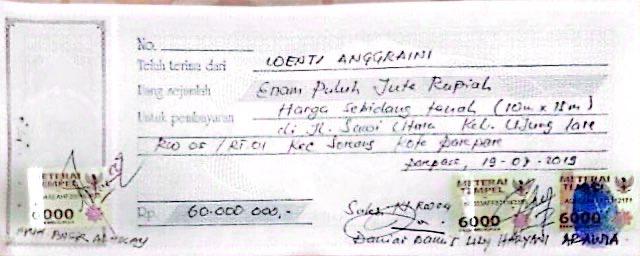 No.
Telah terima dari WENTI ANGGRAINI
Uang sejumlah Enam Puluh Juta Rupiah
Untuk pembayaran Harga Sebidang tanah (10m x 18m)
di Jl. Sawi Utara Kel. Ujung lare
RW 05 / RT 01 Kec Soreang Kota Parepare
Parepare, 19-07-2019
METERAI TEMPEL
6000
Rp. 60.000 000,-
Saksi
METERAI TEMPEL
6000
METERAI TEMPEL
6000
Lily HARYANI